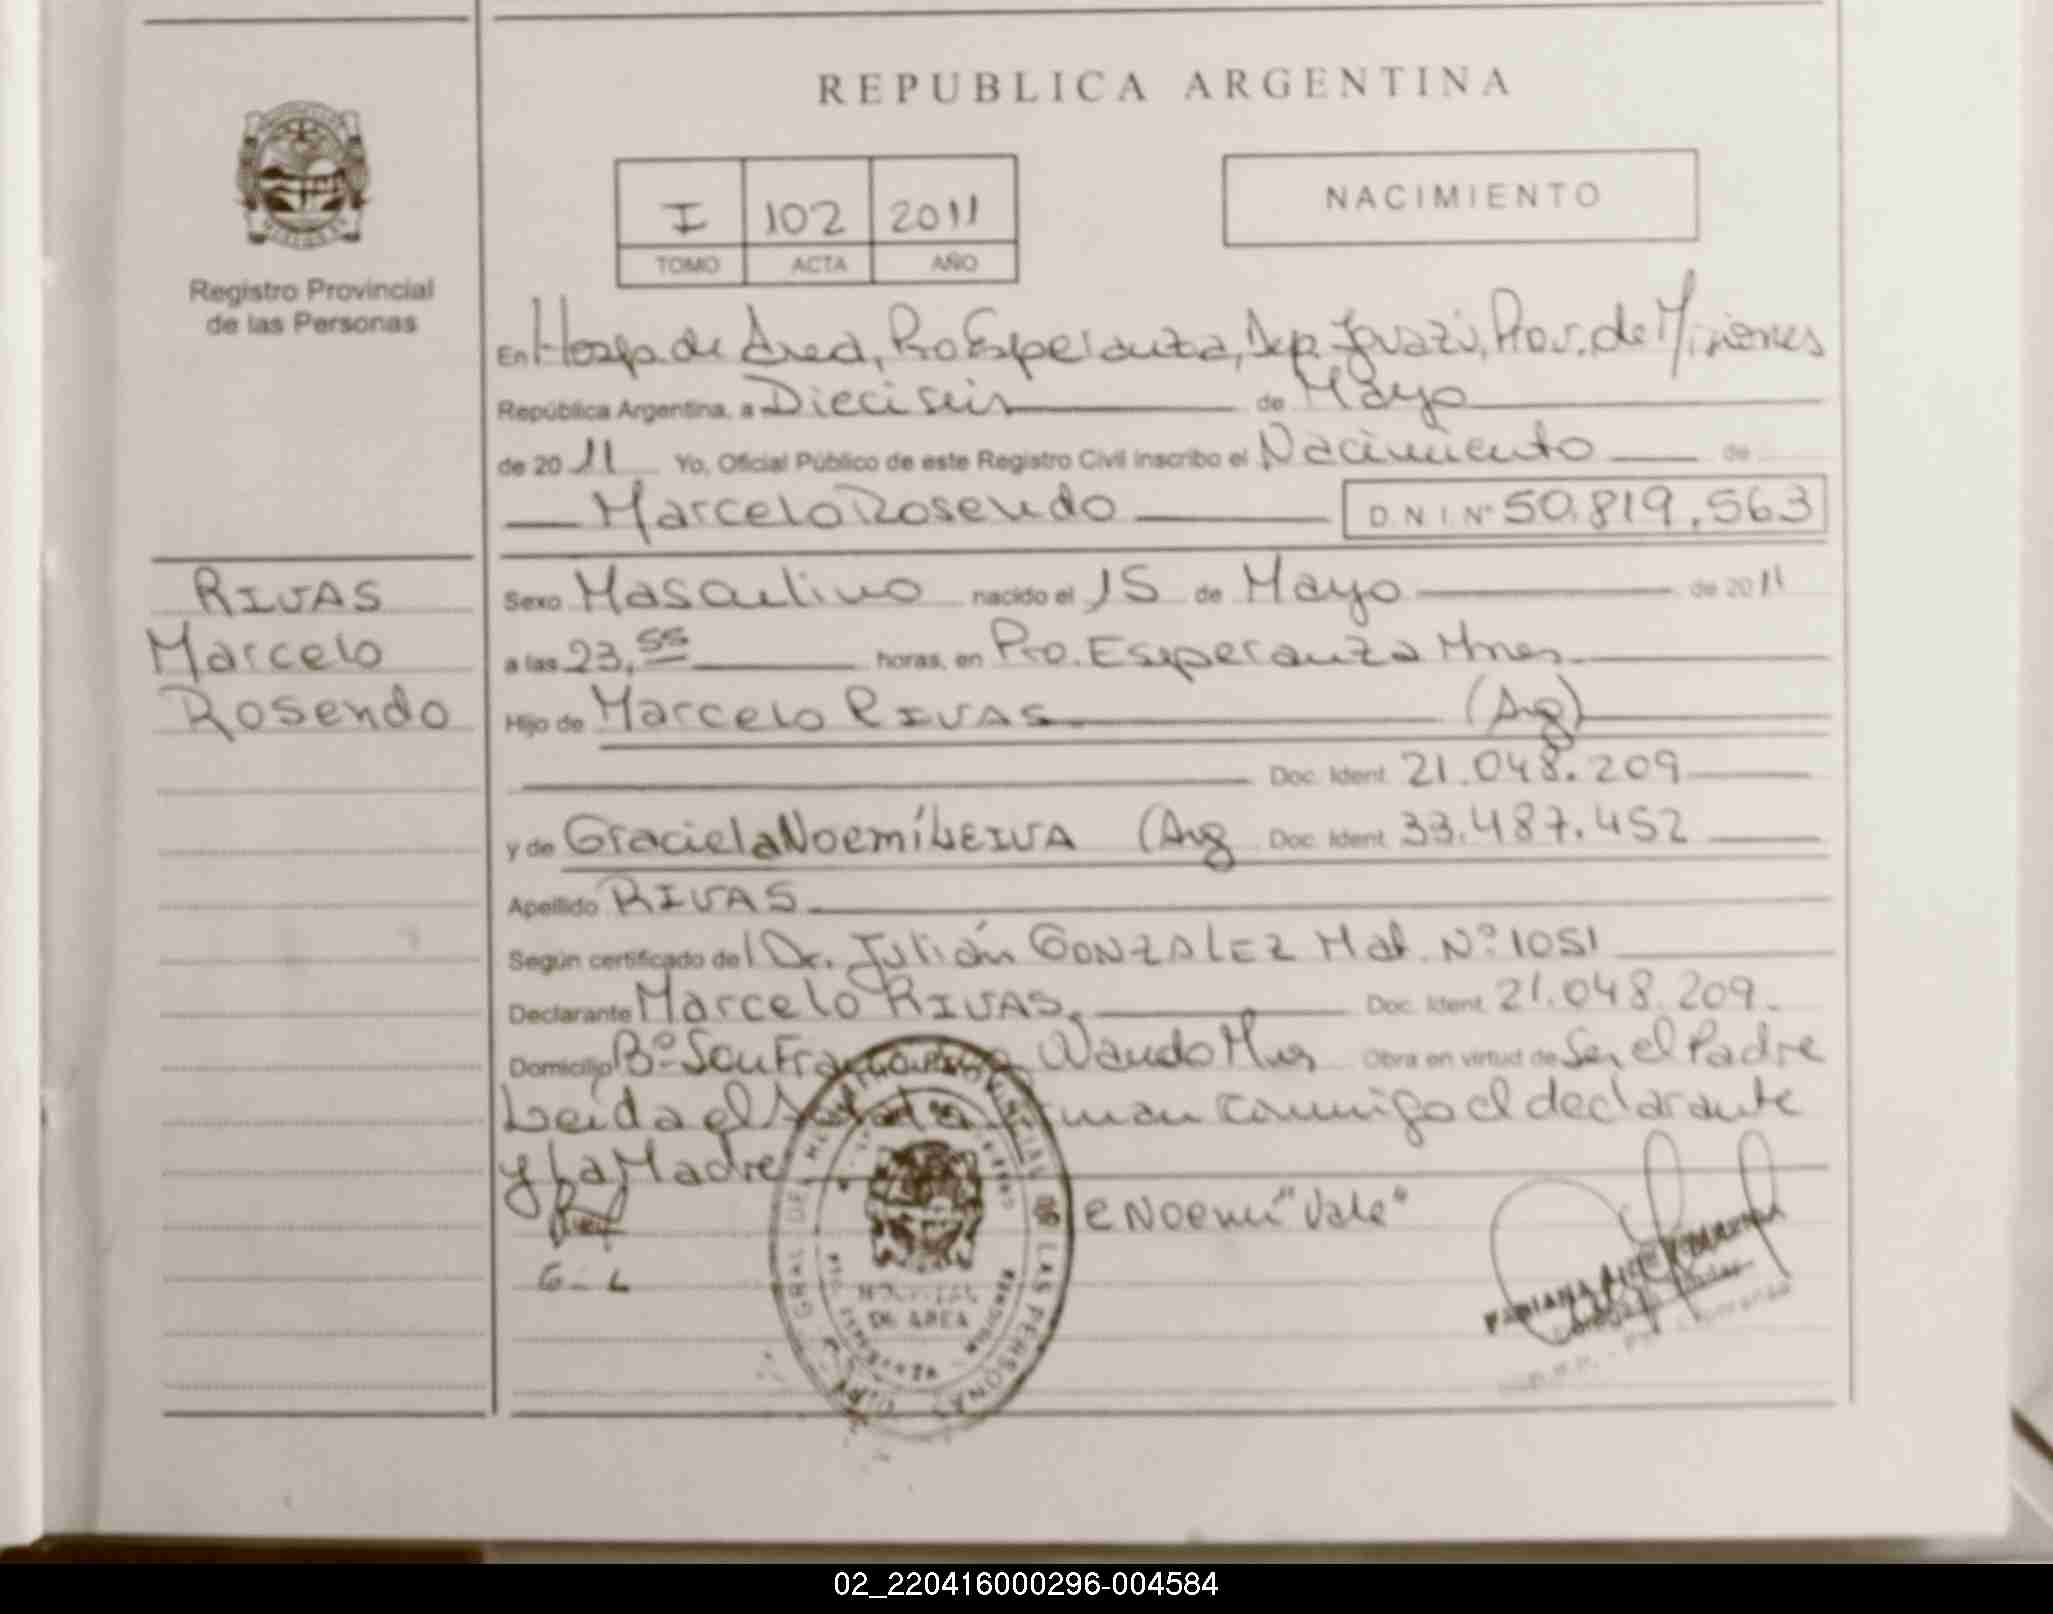 REPUBLICA ARGENTINA
I 102 2011
TOMO ACTA AÑO
NACIMIENTO
Registro Provincial
de las Personas
En Hosp. de Area, Pto Esperanza, Dep. Iguazú, Prov. de Misiones
República Argentina, a Dieciseis de Mayo
de 20 11 Yo, Oficial Público de este Registro Civil inscribo el Nacimiento de
Marcelo Rosendo D.N.I. Nº 50.819.563
RIVAS
Marcelo
Rosendo
Sexo Masculino nacido el 15 de Mayo de 2011
a las 23,55 horas, en Pto. Esperanza Mnes
Hijo de Marcelo RIVAS (Arg)
Doc. Ident. 21.048.209
y de Graciela Noemí LEIVA (Arg Doc. Ident. 33.487.452
Apellido RIVAS
Según certificado del Dr. Julián GONZALEZ Mat. Nº 1051
Declarante Marcelo RIVAS. Doc. Ident. 21.048.209.
Domicilio Bº San Wanda Mns Obra en virtud de Ser el Padre
Leída el conmigo el declarante
y La Madre
e Noemí "Vale"
G - L
GRAL DE LAS PERSONAS
HOSPITAL
DE AREA
02_220416000296-004584